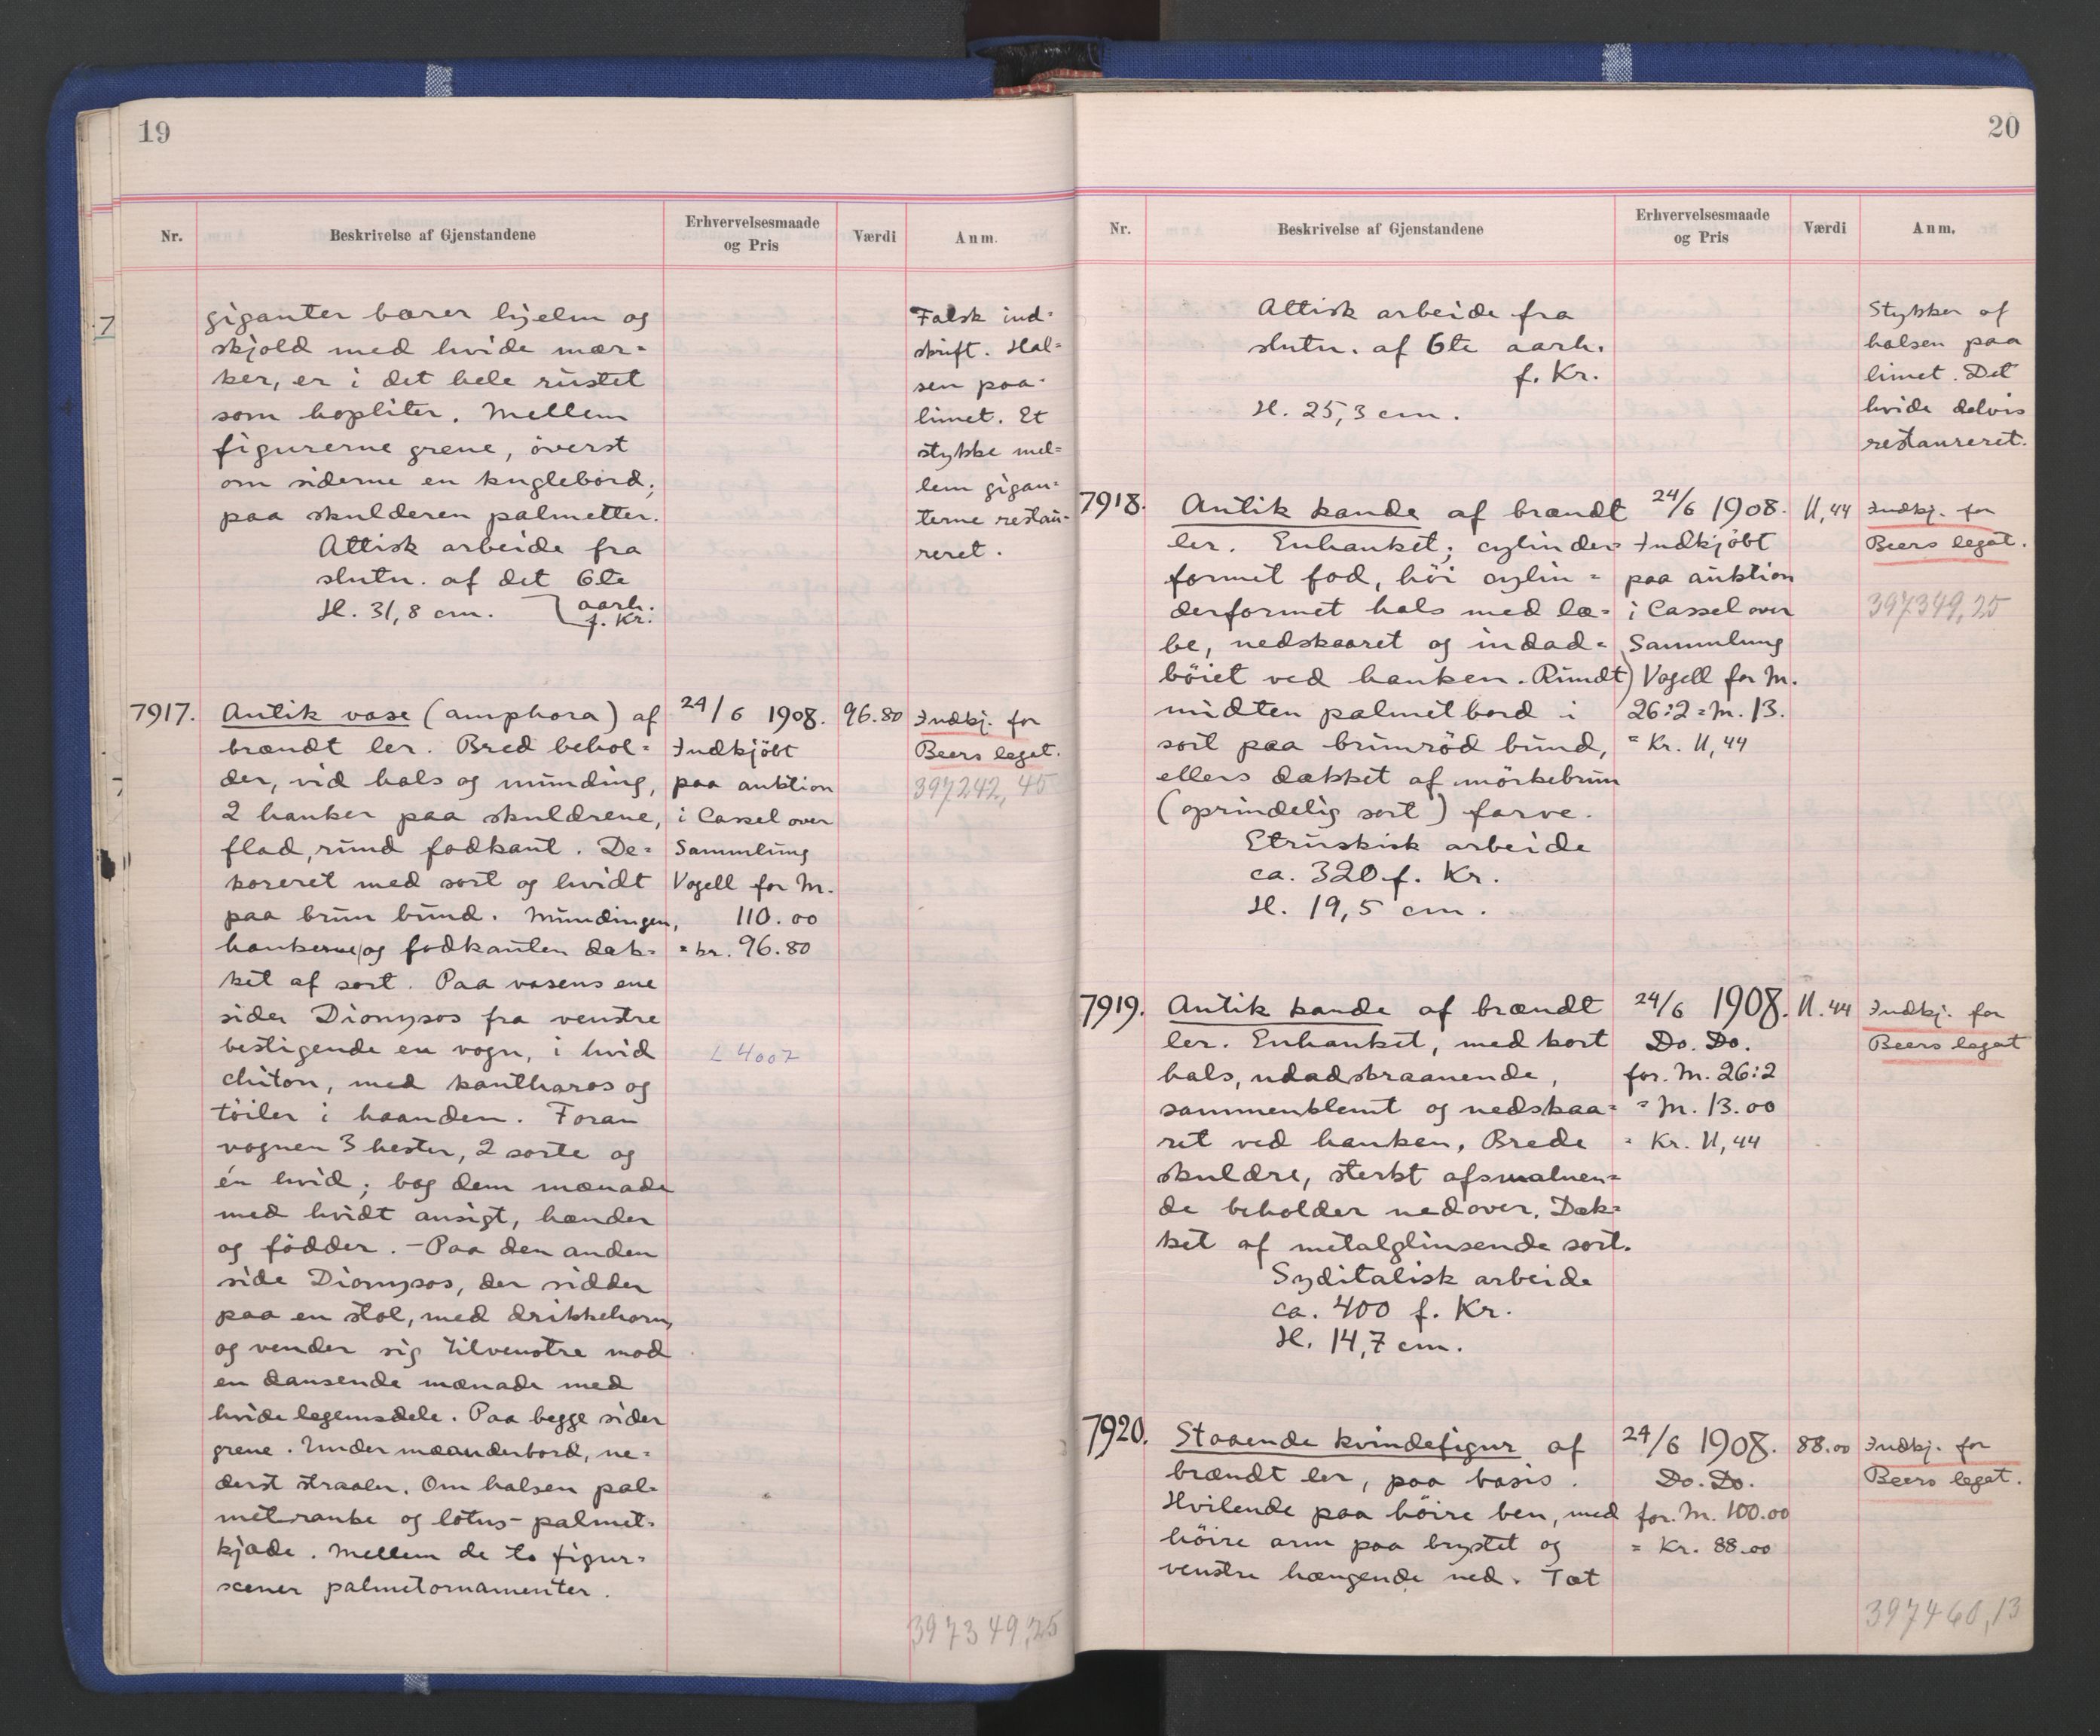 19
Nr.
Beskrivelse af Gjenstandene
Erhvervelsesmaade
og Pris
Værdi
Anm.
giganter bærer hjelm og
skjold med hvide mær=
ker, er i det hele rustet
som hopliter. Mellem
figurerne grene, överst
om siderne en kuglebord;
paa skulderen palmetter.
Attisk arbeide fra
slutn. af det 6te
aarh.
f. Kr.
H. 31,8 cm.
Falsk ind=
skrift. Hal=
sen paa=
limet. Et
stykke mel=
lem gigan=
terne restau=
reret.
7917.
Antik vase (amphora) af
brændt ler. Bred behol=
der, vid hals og munding,
2 hanker paa skuldrene,
flad, rund fodkant. De=
koreret med sort og hvidt
paa brun bund. Mundingen,
hankerne og fodkanten dæk=
ket af sort. Paa vasens ene
sider Dionysos fra venstre
bestigende en vogn, i hvid
chiton, med kantharos og
töiler i haanden. Foran
vognen 3 hester, 2 sorte og
én hvid; bag dem mænade
med hvidt ansigt, hænder
og födder. – Paa den anden
side Dionysos, der sidder
paa en stol, med drikkehorn,
og vender sig tilvenstre mod
en dansende mænade med
hvide legemsdele. Paa begge sider
grene. Under mæanderbord, ne=
derst straaler. Om halsen pal=
metranke og lotus-palmet=
kjæde. Mellem de to figur=
scener palmetornamenter.
24/6 1908.
Indkjöbt
paa auktion
i Cassel over
Sammlung
Vogell for M.
110.00
= kr. 96.80
L 4007
96.80
Indkj. for
Beers legat.
397242,45
397349,25
20
Nr.
Beskrivelse af Gjenstandene
Erhvervelsesmaade
og Pris
Værdi
Anm.
Attisk arbeide fra
slutn. af 6te aarh.
f. Kr.
H. 25,3 cm.
Stykker af
halsen paa
limet. Det
hvide delvis
restaureret.
7918.
Antik kande af brændt
ler. Enhanket; cylinder=
formet fod, höi cylin=
derformet hals med læ=
be, nedskaaret og indad=
böiet ved hanken. Rundt
midten palmetbord i
sort paa brunröd bund,
ellers dækket af mörkebrun
(oprindelig sort) farve.
Etruskisk arbeide
ca. 320 f. Kr.
H. 19,5 cm.
24/6 1908.
Indkjöbt
paa auktion
i Cassel over
Sammlung
Vogell for M.
26:2 = M. 13.
= Kr. 11,44
11,44
Indkj. for
Beers legat.
397349,25
7919.
Antik kande af brændt
ler. Enhanket, med kort
hals, udadskraanende,
sammenklemt og nedskaa=
ret ved hanken. Brede
skuldre, sterkt afsmalnen=
de beholder nedover. Dæk=
ket af metalglinsende sort.
Syditalisk arbeide
ca. 400 f. Kr.
H. 14,7 cm.
24/6 1908.
Do. Do.
for. M. 26:2
= M. 13.00
= Kr. 11,44
11.44
Indkj. for
Beers legat
7920.
Staaende kvindefigur af
brændt ler, paa basis.
Hvilende paa höire ben, med
höire arm paa brystet og
venstre hængende ned. Tæt
24/6 1908.
Do. Do.
for. M. 100.00
= Kr. 88.00
88.00
Indkj. for
Beers legat.
397460,13